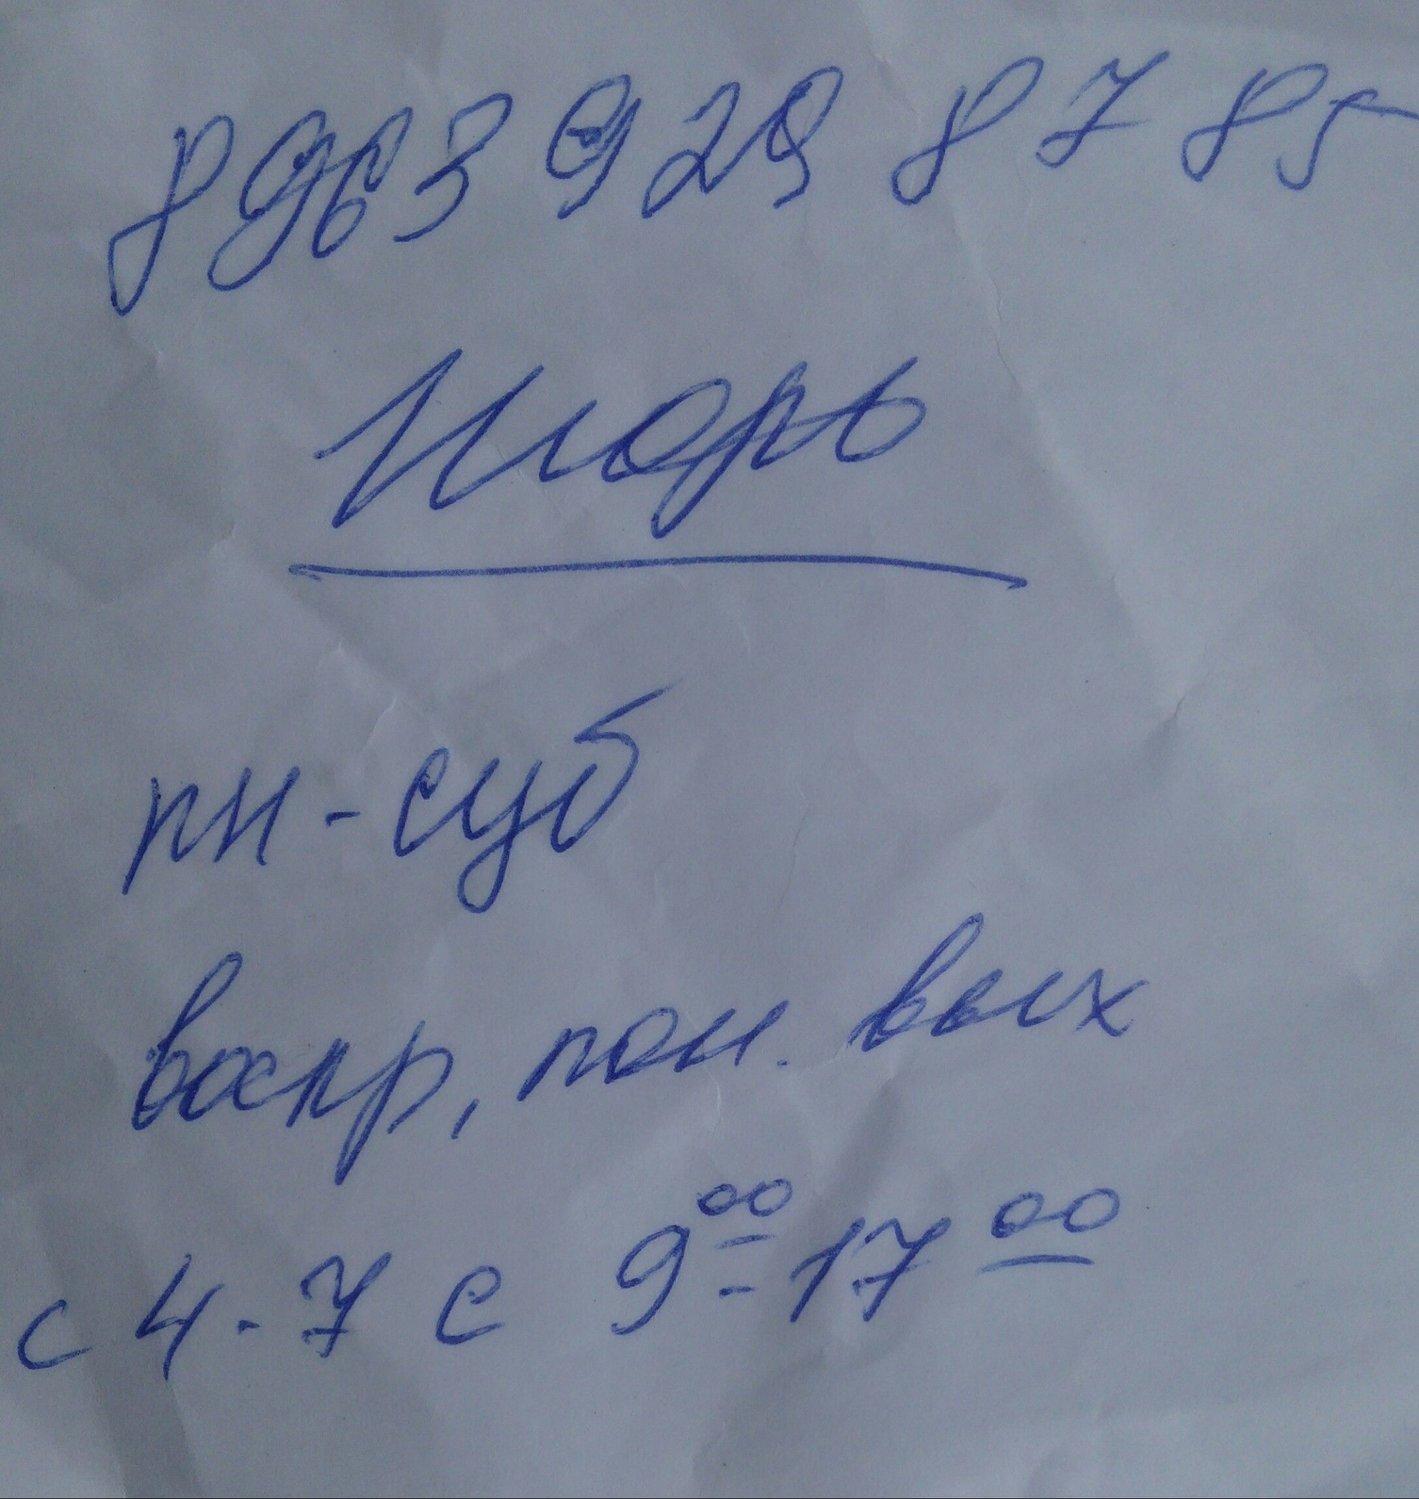 8963 929 87 85
Игорь
пн-суб
воскр, пон. вых
с 4-7 с 9⁰⁰-17⁰⁰